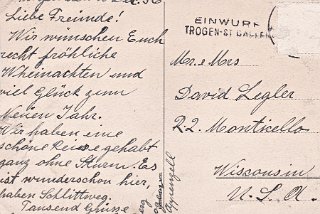 Liebe Freunde!
Wir wünschen Euch
recht fröhliche
Weihnachten und
viel Glück zum
Neuen Jahr.
Wir haben eine
schöne Reise gehabt
ganz ohne Sturm. Es
ist wunderschön hier,
haben Schlittweg.
Tausend Grüsse
EINWURF
TROGEN-ST GALLEN
Mr. & Mrs
David Legler
22. Monticello
Wisconsin
U.S.A.
Appenzell